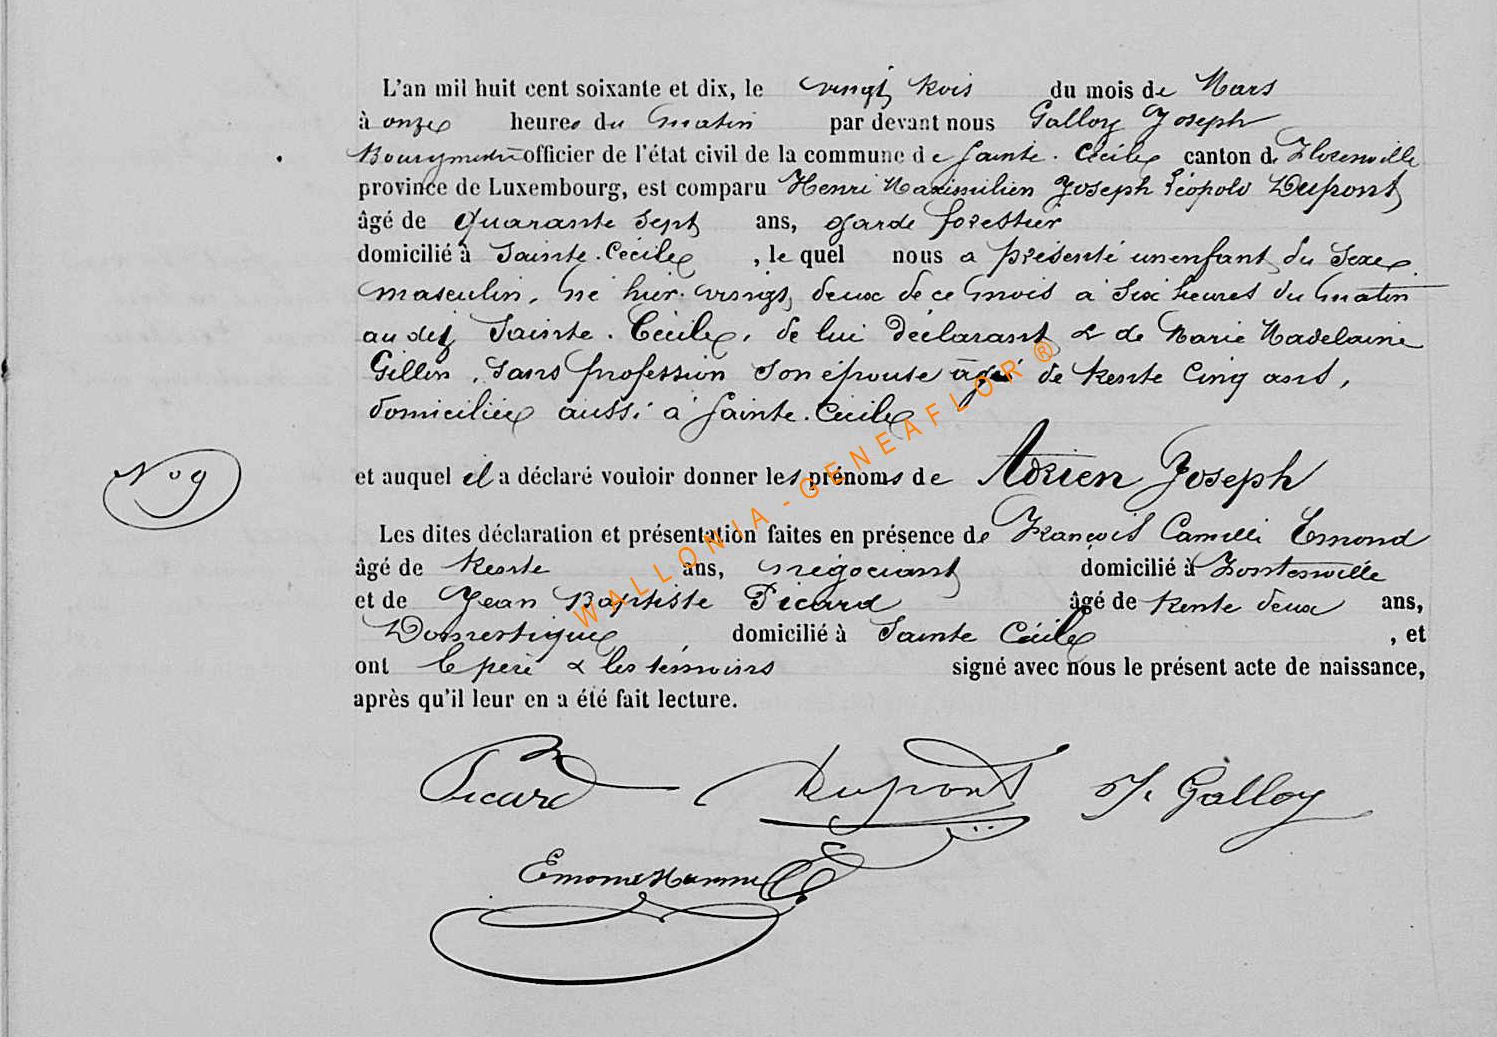 L'an mil huit cent soixante et dix, le vingt trois du mois de Mars
à onze heures du matin par devant nous Galloy Joseph
Bourgmestre officier de l'état civil de la commune de Sainte-Cécile canton de Florenville
province de Luxembourg, est comparu Henri Maximilien Joseph Léopold Dupont
âgé de quarante sept ans, garde forestier
domicilié à Sainte-Cécile, le quel nous a présenté un enfant du sexe
masculin, né hier vingt deux de ce mois à six heures du matin
au dit Sainte-Cécile, de lui déclarant & de Marie Madelaine
Gillin, sans profession son épouse âgé de trente cinq ans,
domiciliée aussi à Sainte-Cécile
No 9
et auquel il a déclaré vouloir donner les prénoms de Adrien Joseph
Les dites déclaration et présentation faites en présence de François Camille Emond
âgé de trente ans, négociant domicilié à
et de Jean Baptiste Picard âgé de trente deux ans,
Domestique domicilié à Sainte Cécile, et
ont le père & les témoins signé avec nous le présent acte de naissance,
après qu'il leur en a été fait lecture.
Picard Dupont J. Galloy
WALLONIA-GENEAFLOR®